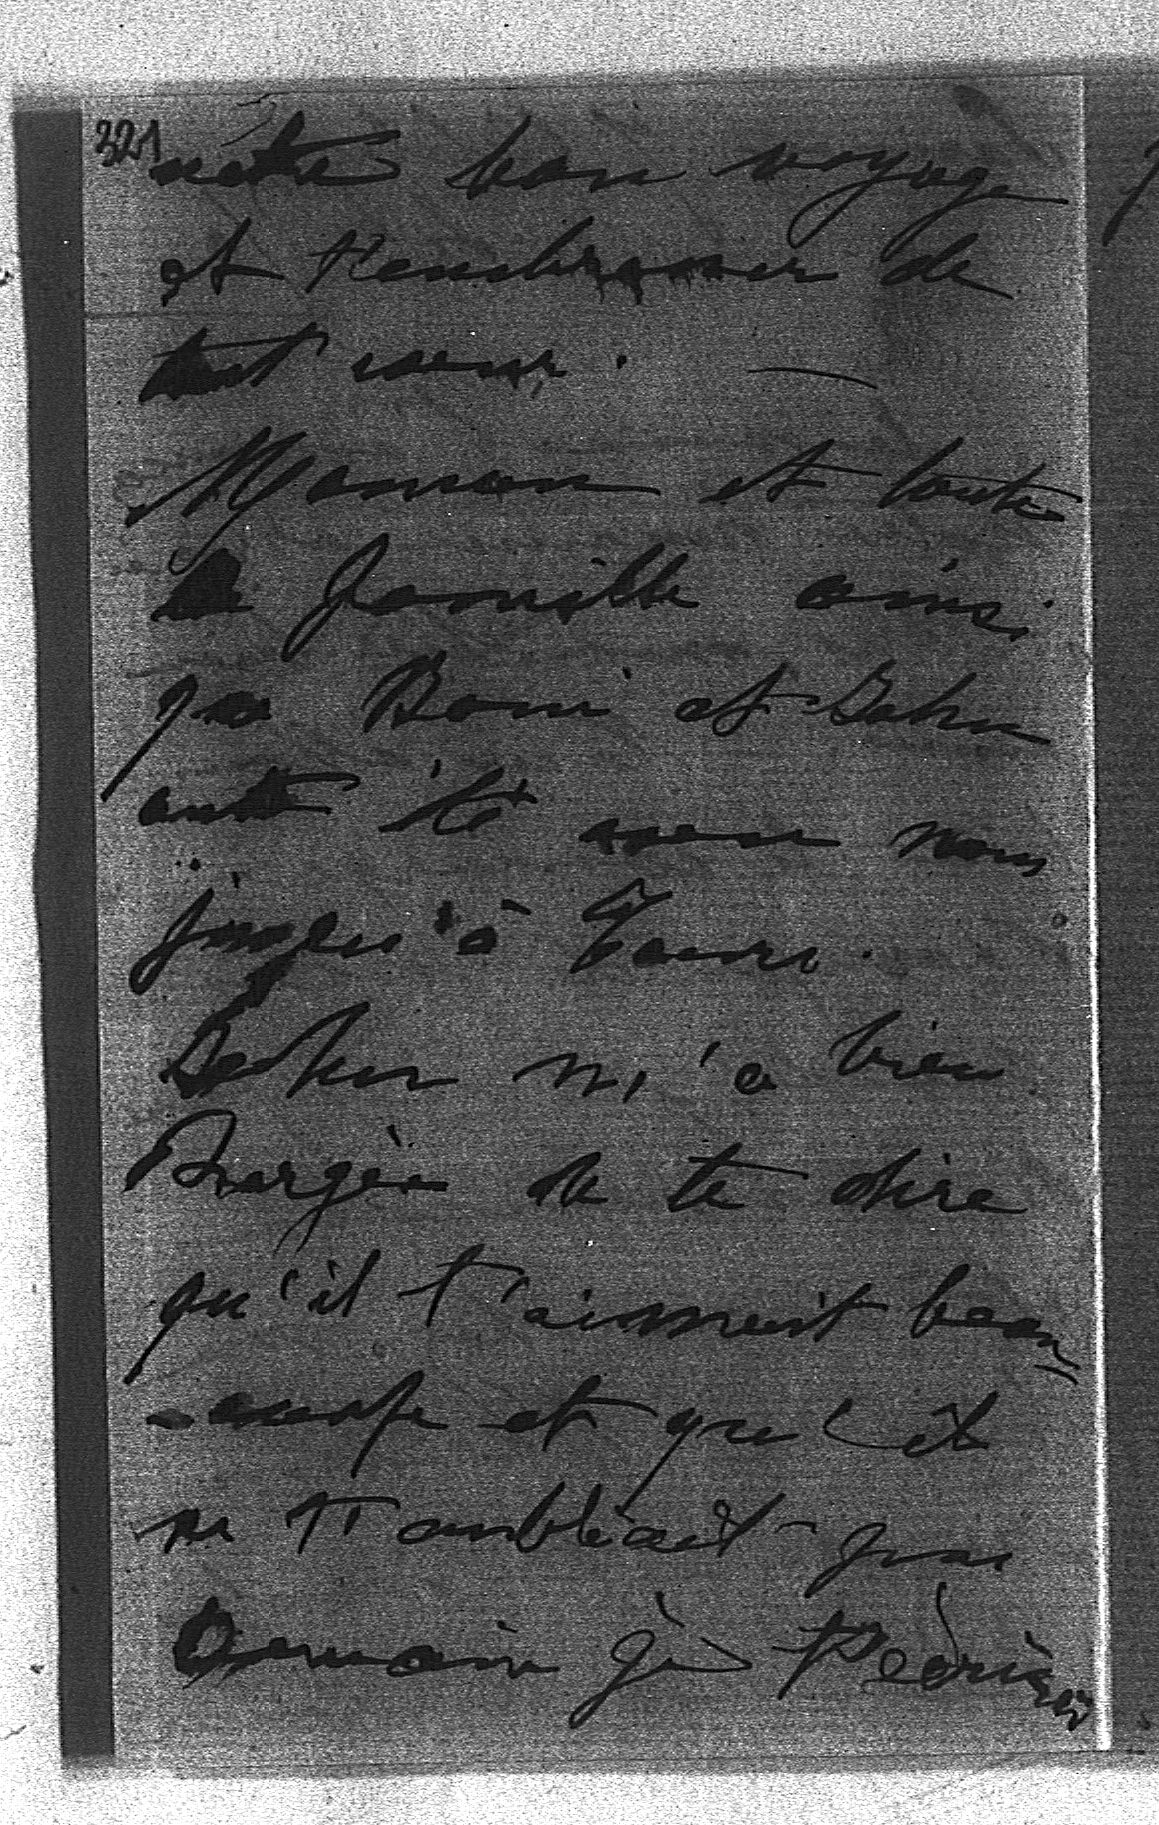 321
notre bon voyage
et t'embrasser de
tout coeur.
Maman et toute
la famille ainsi
que Boni et
ont été avec nous
jusqu'à Tours.
m'a bien
chargée de te dire
qu'il t'aimait beau-
-coup et qu'il
ne t'oubliait pas
Demain je t'écrirai